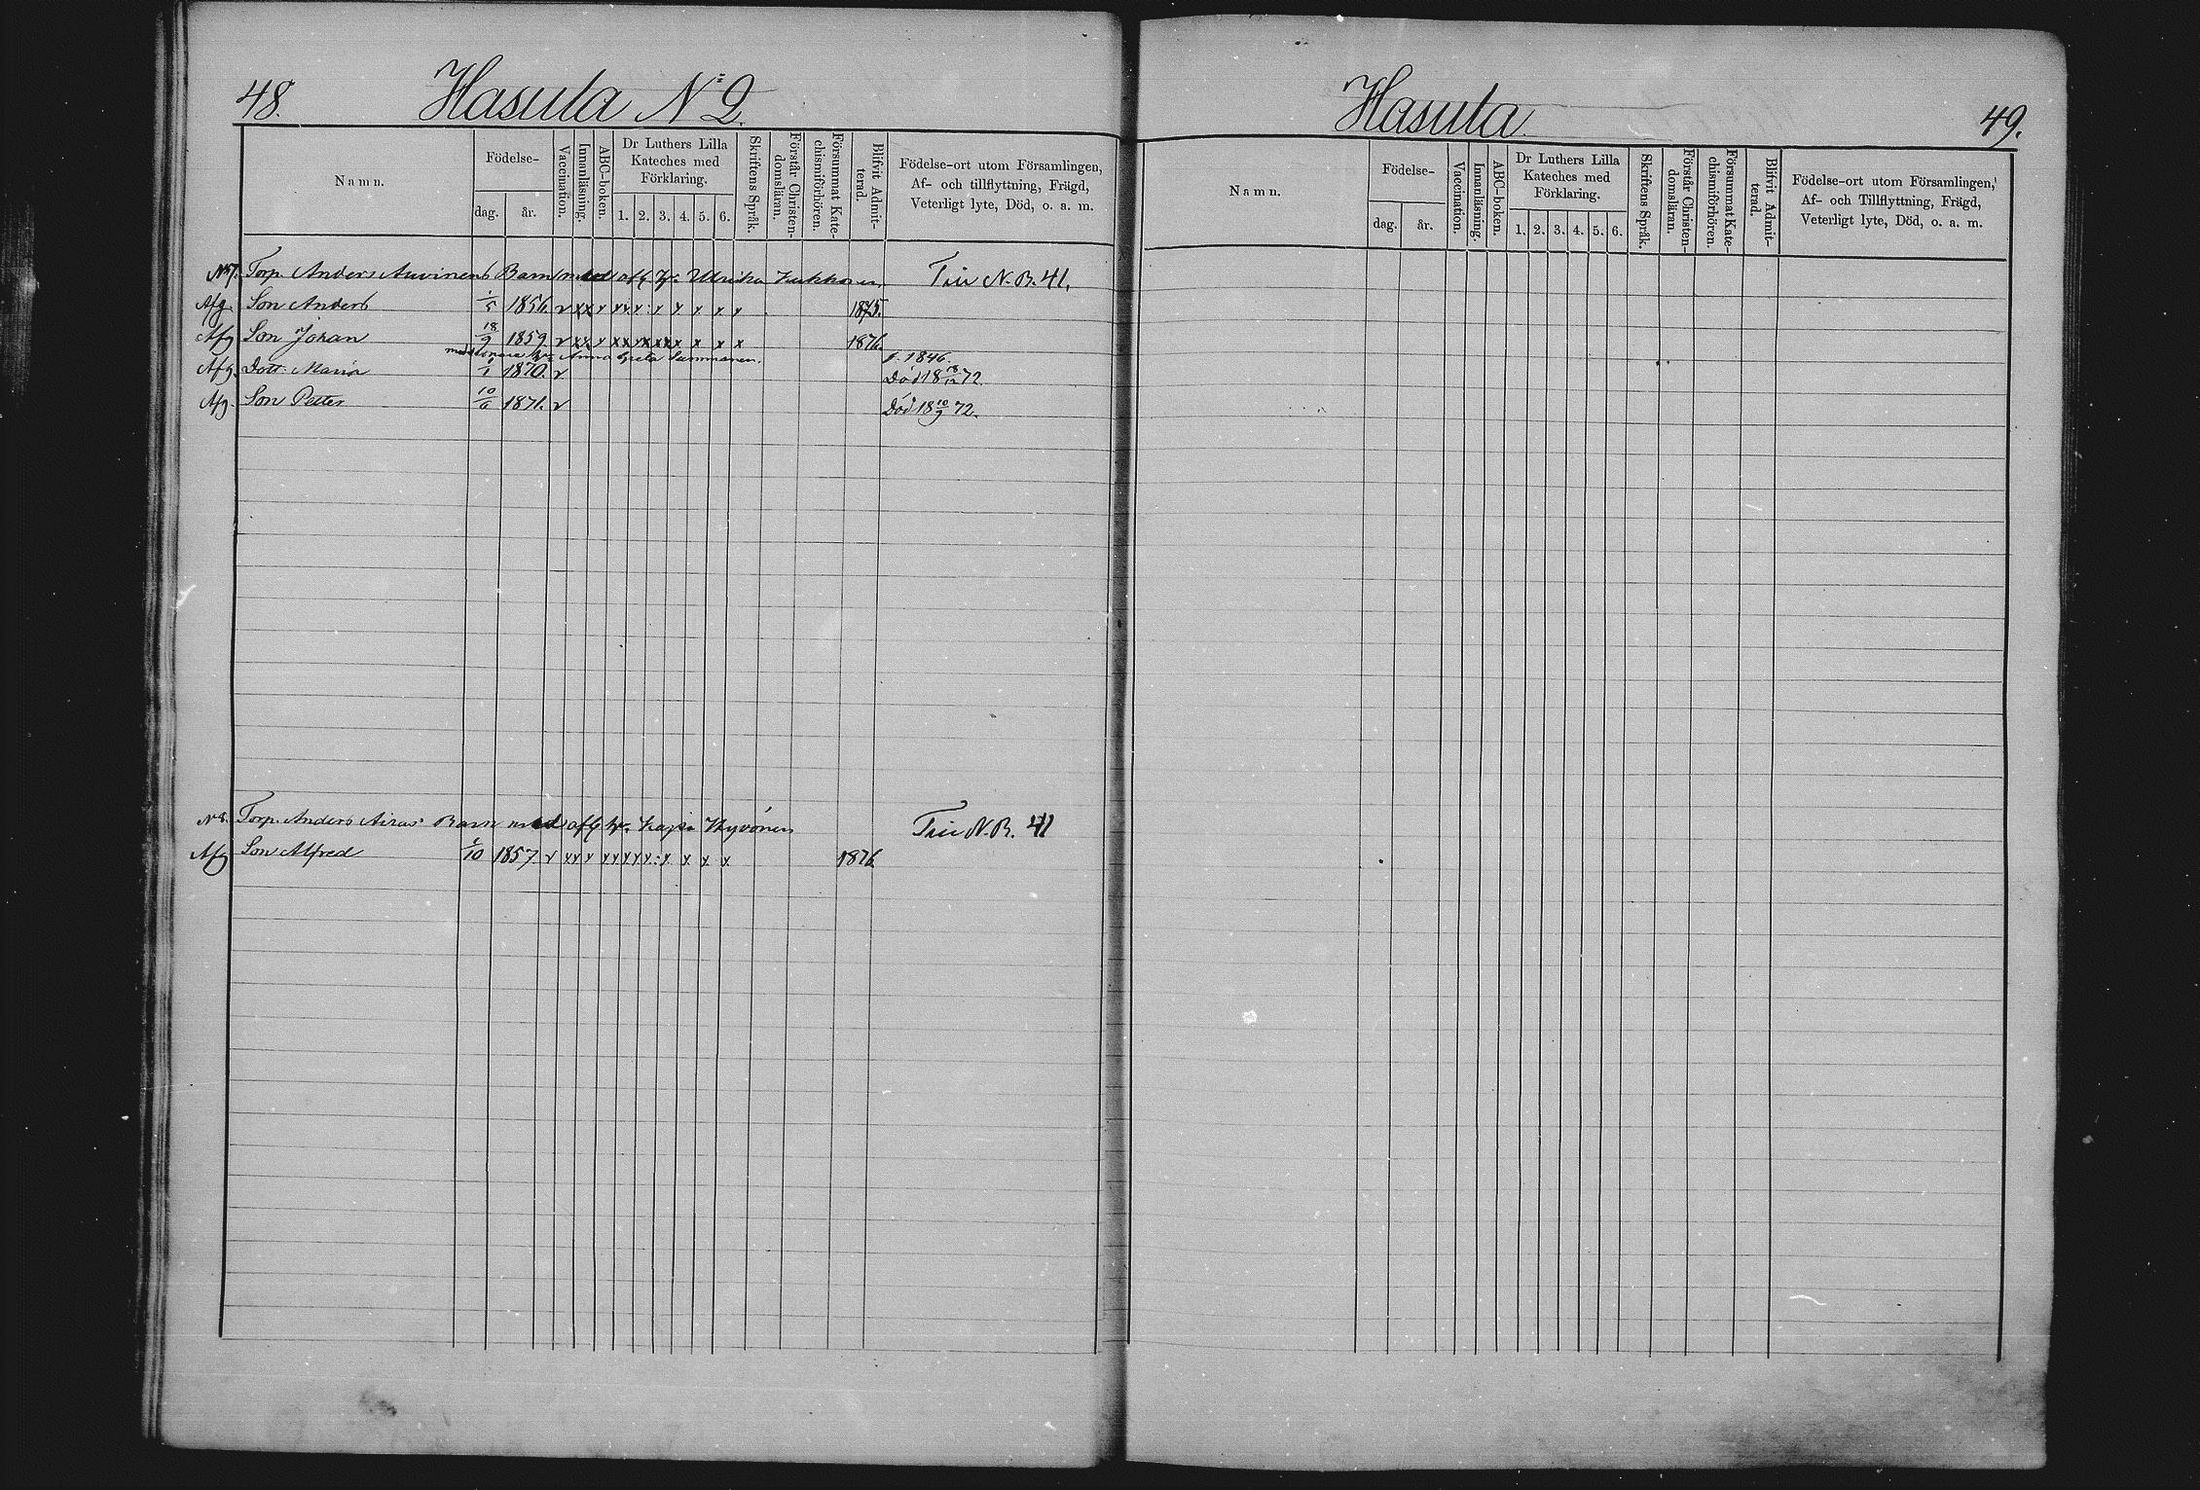 48.
Hasula No 2.
Namn.
Födelse-
dag.
år.
Vaccination.
Innanläsning.
ABC-boken.
Dr Luthers Lilla
Kateches med
Förklaring.
1. 2. 3. 4. 5. 6.
Skriftens Språk.
Förstår Christen-
domsläran.
Försummat Kate-
chismiförhören.
Blifvit Admit-
terad.
Födelse-ort utom Församlingen,
Af- och tillflyttning, Frägd,
Veterligt lyte, Död, o. a. m.
No 7. Torp. Anders Auvinens Barn med afl. h. Ulrika Kukkonen Se N. B. 41.
Afg. Son Anders 1/5 1856. v xx x xxx : x x x x x 1875.
Afg Son Johan 18/9 1859. v xx x xxxxxxx x x x 1876.
med senare h. Anna Greta f. 1846.
Afg. Dott. Maria 1/1 1870. v Död 18 18/12 72.
Afg. Son Petter 10/6 1871. v Död 18 10/9 72.
N 8. Torp. Anders Airas' Barn med afl h. Kajsa Hyvönen Se N. B. 41
Afg Son Alfred 1/10 1857 v xx x xxxxx : x x x x 1876
Hasula
49.
Namn.
Födelse-
dag.
år.
Vaccination.
Innanläsning.
ABC-boken.
Dr Luthers Lilla
Kateches med
Förklaring.
1. 2. 3. 4. 5. 6.
Skriftens Språk.
Förstår Christen-
domsläran.
Försummat Kate-
chismiförhören.
Blifvit Admit-
terad.
Födelse-ort utom Församlingen,
Af- och Tillflyttning, Frägd,
Veterligt lyte, Död, o. a. m.